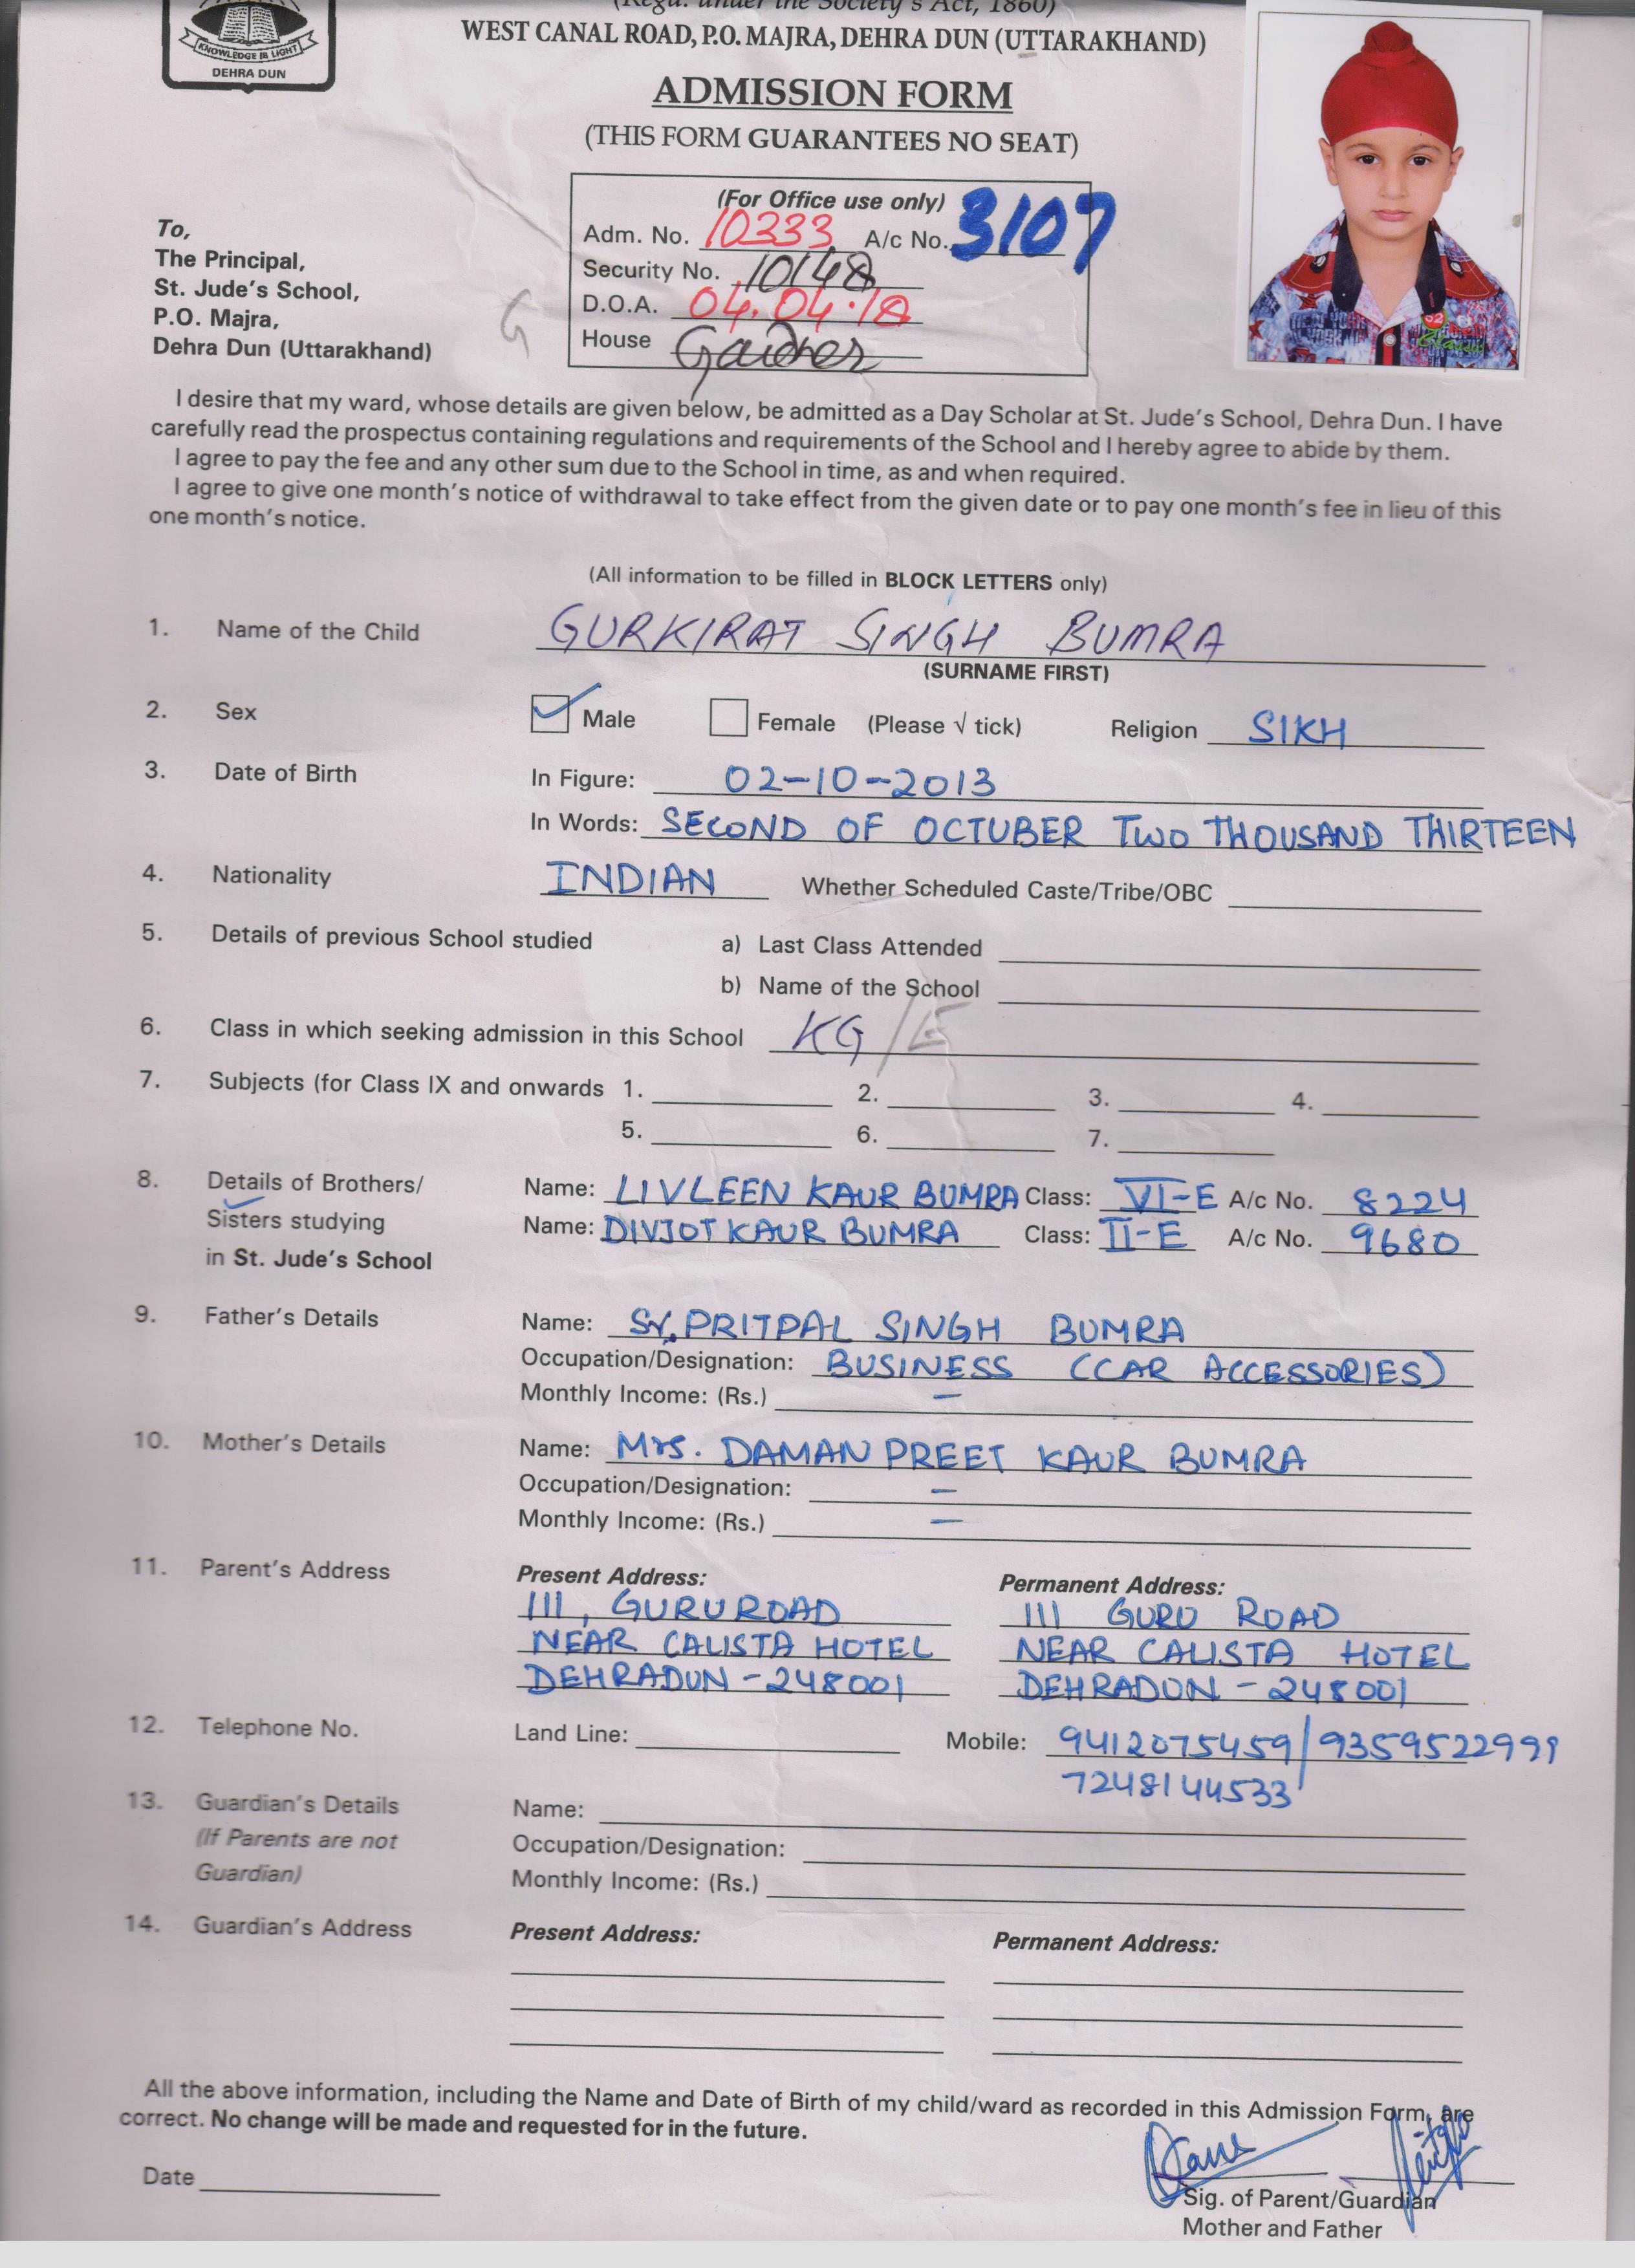 (Regd. under the Society's Act, 1860)
WEST CANAL ROAD, P.O. MAJRA, DEHRA DUN (UTTARAKHAND)
KNOWLEDGE IS LIGHT
DEHRA DUN
ADMISSION FORM
(THIS FORM GUARANTEES NO SEAT)
(For Office use only)
Adm. No. 10333 A/c No. 3107
Security No. 10148
D.O.A. 04.04.18
House
To,
The Principal,
St. Jude's School,
P.O. Majra,
Dehra Dun (Uttarakhand)
G
I desire that my ward, whose details are given below, be admitted as a Day Scholar at St. Jude's School, Dehra Dun. I have
carefully read the prospectus containing regulations and requirements of the School and I hereby agree to abide by them.
I agree to pay the fee and any other sum due to the School in time, as and when required.
I agree to give one month's notice of withdrawal to take effect from the given date or to pay one month's fee in lieu of this
one month's notice.
(All information to be filled in BLOCK LETTERS only)
1. Name of the Child GURKIRAT SINGH BUMRA
(SURNAME FIRST)
2. Sex Male Female (Please √ tick) Religion SIKH
3. Date of Birth In Figure: 02-10-2013
In Words: SECOND OF OCTUBER TWO THOUSAND THIRTEEN
4. Nationality INDIAN Whether Scheduled Caste/Tribe/OBC
5. Details of previous School studied a) Last Class Attended
b) Name of the School
6. Class in which seeking admission in this School KG/E
7. Subjects (for Class IX and onwards 1. 2. 3. 4.
5. 6. 7.
8. Details of Brothers/ Name: LIVLEEN KAUR BUMRA Class: VI-E A/c No. 8224
Sisters studying Name: DIVJOT KAUR BUMRA Class: II-E A/c No. 9680
in St. Jude's School
9. Father's Details Name: Sr. PRITPAL SINGH BUMRA
Occupation/Designation: BUSINESS (CAR ACCESSORIES)
Monthly Income: (Rs.) –
10. Mother's Details Name: Mrs. DAMAN PREET KAUR BUMRA
Occupation/Designation: –
Monthly Income: (Rs.) –
11. Parent's Address Present Address: Permanent Address:
111, GURU ROAD 111 GURU ROAD
NEAR CALISTA HOTEL NEAR CALISTA HOTEL
DEHRADUN - 248001 DEHRADUN - 248001
12. Telephone No. Land Line: Mobile: 9412075459/9359522999
7248144533
13. Guardian's Details Name:
(If Parents are not Occupation/Designation:
Guardian) Monthly Income: (Rs.)
14. Guardian's Address Present Address: Permanent Address:
All the above information, including the Name and Date of Birth of my child/ward as recorded in this Admission Form, are
correct. No change will be made and requested for in the future.
Date
Sig. of Parent/Guardian
Mother and Father